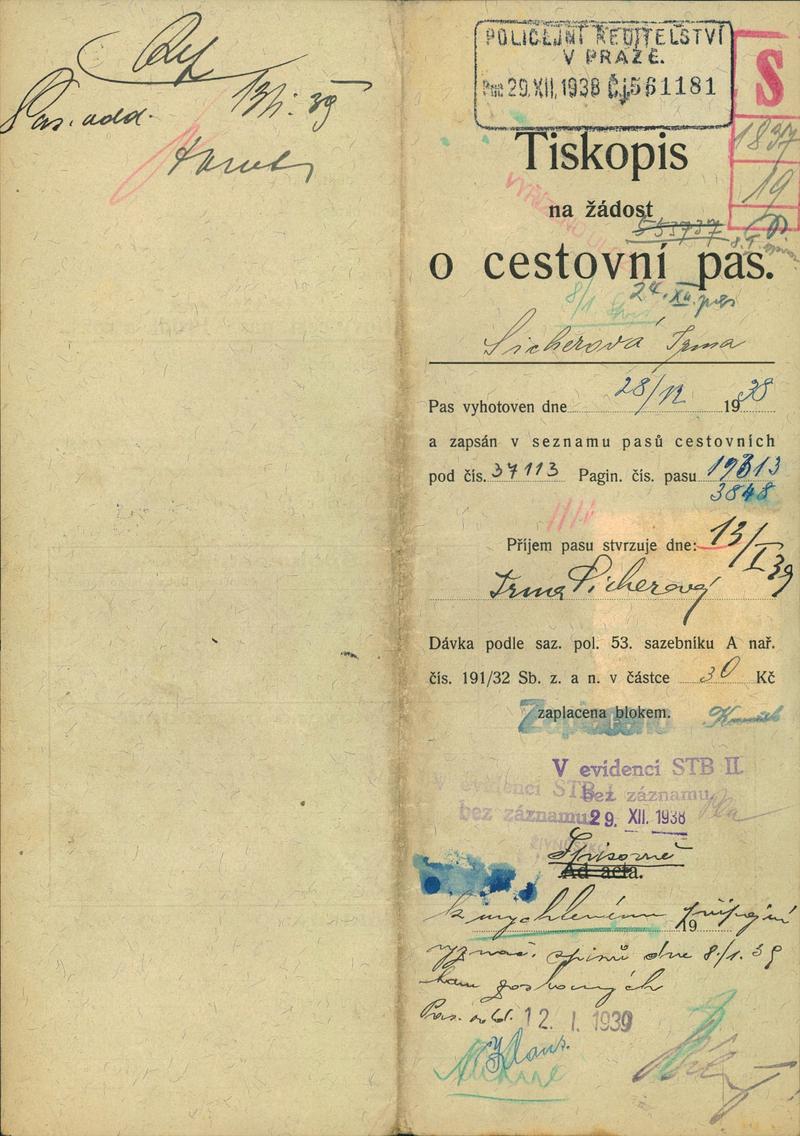 13/I. 39
Pas. odd.
POLICEJNÍ ŘEDITELSTVÍ
V PRAZE.
29. XII. 1938 Čj. 561181
S
1837
19
Tiskopis
na žádost
553737
o cestovní pas.
24. XII. pas
8/1
Sicherová Irma
Pas vyhotoven dne 28/12 1938
a zapsán v seznamu pasů cestovních
pod čís. 37113 Pagin. čís. pasu 19313
3848
Příjem pasu stvrzuje dne: 13/I 39
Irma Sicherová
Dávka podle saz. pol. 53. sazebníku A nař.
čís. 191/32 Sb. z. a n. v částce 30 Kč
Zaplaceno
zaplacena blokem.
V evidenci STB II.
bez záznamu
V evidenci STB I.
bez záznamu
29. XII. 1938
Spisovně
Ad acta.
k urychlenému připojení
19
spisů dne 8./1. 39
Pas. odd. 12. I. 1939